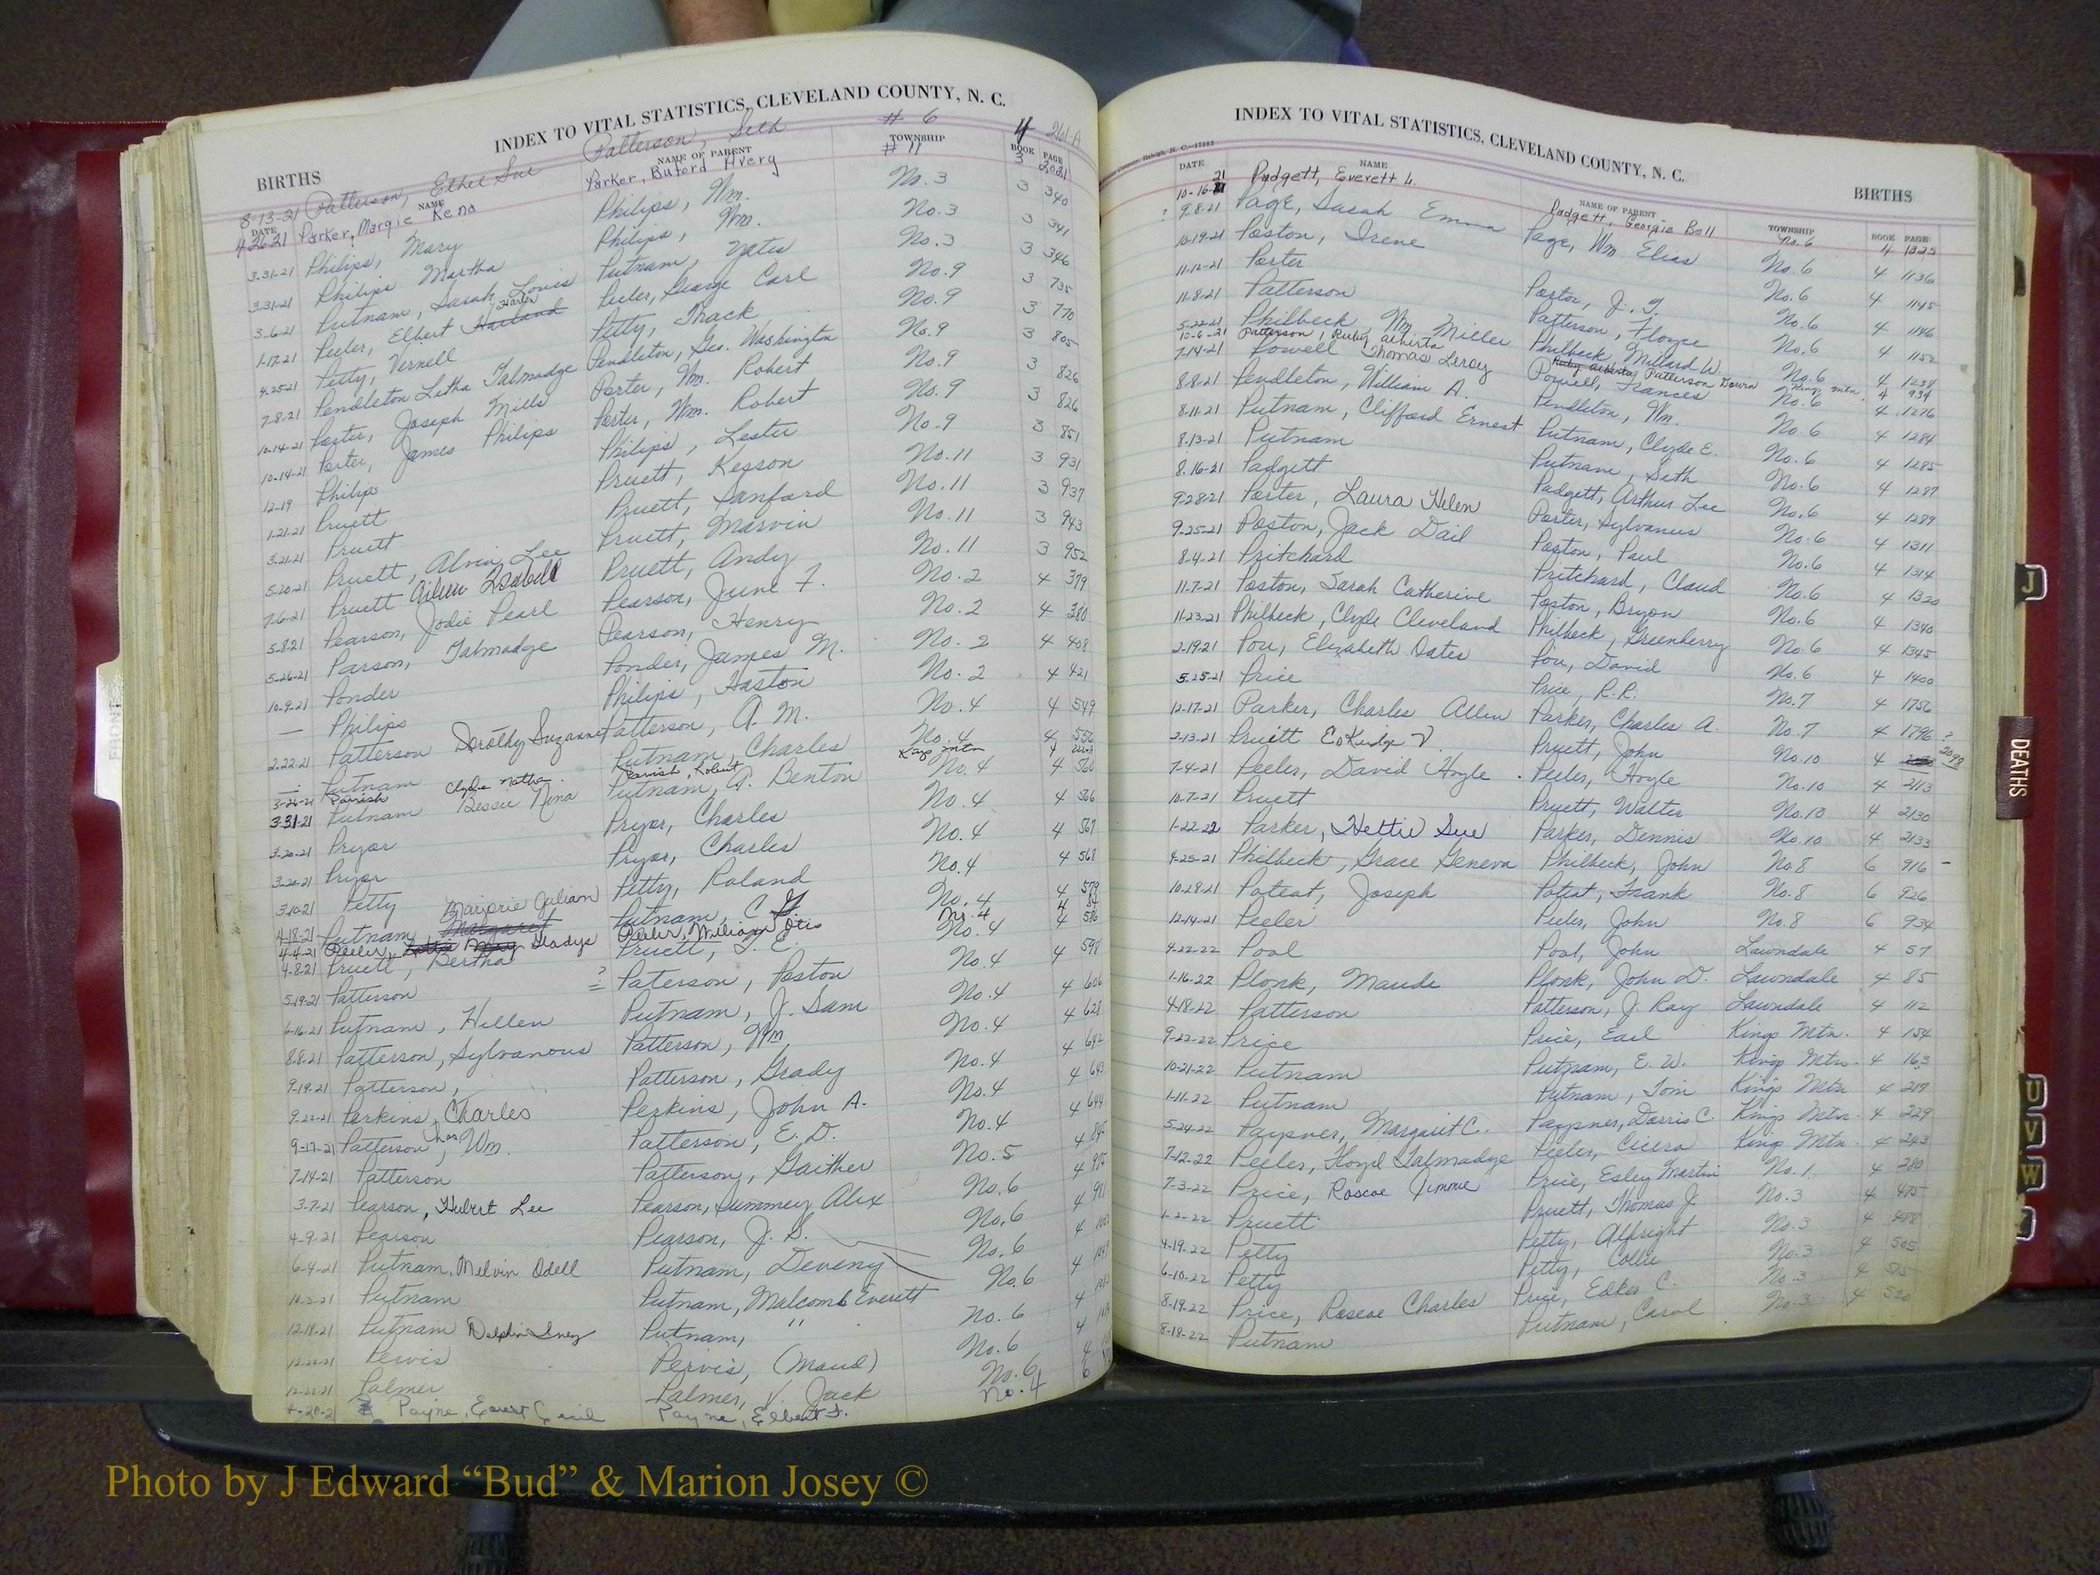 INDEX TO VITAL STATISTICS, CLEVELAND COUNTY, N. C.
BIRTHS
8-13-21 Patterson, Ethel Sue Patterson, Seth # 6 4 261-A
DATE NAME NAME OF PARENT TOWNSHIP BOOK PAGE
4-26-21 Parker, Margie Kena Parker, Buford Avery # 11 3 2021
3-31-21 Philips, Mary Philips, Wm. No. 3 3 340
3-31-21 Philips Martha Philips, Wm. No. 3 3 341
3-6-21 Putnam, Sarah Louis Putnam, Yates No. 3 3 346
1-17-21 Peeler, Elbert Peeler, George Carl No. 9 3 735
4-25-21 Petty, Vernell Petty, Thack No. 9 3 770
7-8-21 Pendleton Litha Talmadge Pendleton, Geo. Washington No. 9 3 805
10-14-21 Porter, Joseph Mills Porter, Wm. Robert No. 9 3 826
10-14-21 Porter, James Philips Porter, Wm. Robert No. 9 3 826
12-19 Philip Philips, Lester No. 9 3 851
1-21-21 Pruett Pruett, Kesson No. 11 3 931
3-21-21 Pruett Pruett, Sanford No. 11 3 937
5-20-21 Pruett, Alvin Lee Pruett, Marvin No. 11 3 943
7-6-21 Pruett Aileen Izabell Pruett, Andy No. 11 3 952
5-8-21 Pearson, Jodie Pearl Pearson, June F. No. 2 4 379
5-26-21 Parson, Talmadge Pearson, Henry No. 2 4 380
10-9-21 Ponder Ponder, James M. No. 2 4 408
— Philips Philips, Haston No. 2 4 421
2-22-21 Patterson Dorothy Suzanne Patterson, A. M. No. 4 4 549
— Putnam Putnam, Charles No. 4 4 556
3-26-21 Parish Clyde Natha Parish, Robert Kings Mtn 4
3-31-21 Putnam Bessie Nina Putnam, A. Benton No. 4 4 560
3-20-21 Pryor Pryor, Charles No. 4 4 566
3-20-21 Pryor Pryor, Charles No. 4 4 567
3-10-21 Petty Petty, Roland No. 4 4 568
4-18-21 Putnam Marjorie Julian Margaret Putnam, C. No. 4 4 579
4-4-21 Peeler, Gladys Peeler, William Otis No. 4 4 84
4-8-21 Pruett, Bertha Pruett, T. E. No. 4 4 586
5-19-21 Patterson ? Paterson, Poston No. 4 4 598
6-16-21 Putnam, Hillen Putnam, J. Sam No. 4 4 606
8-8-21 Patterson, Sylvanous Patterson, Wm No. 4 4 628
9-19-21 Patterson, Patterson, Grady No. 4 4 642
9-22-21 Perkins, Charles Perkins, John A. No. 4 4 643
9-17-21 Patterson, Wm. Patterson, E. D. No. 4 4 644
7-14-21 Patterson Patterson, Gaither No. 5 4 845
3-7-21 Pearson, Hubert Lee Pearson, Summey Alex No. 6 4 975
4-9-21 Pearson Pearson, J. S. No. 6 4 981
6-4-21 Putnam, Melvin Odell Putnam, Deveny No. 6 4
10-3-21 Putnam Putnam, Malcomb Everett No. 6 4
12-18-21 Putnam Delphin Iney Putnam, " No. 6 4
12-22-21 Pervis Pervis, (Maud) No. 6 4
12-22-21 Palmer Palmer, V. Jack No. 6 4
4-20-2 Payne, Ernest Cecil Payne, Elbert F. No. 4 6
INDEX TO VITAL STATISTICS, CLEVELAND COUNTY, N. C.
BIRTHS
DATE NAME NAME OF PARENT TOWNSHIP BOOK PAGE
10-16-21 Padgett, Everett L. Padgett, Georgie Bell No. 6 4 1325
? 9-8-21 Page, Sarah Emma Page, Wm Elias No. 6 4 1136
10-19-21 Poston, Irene No. 6 4 1145
11-12-21 Porter Porter, J. T. No. 6 4 1146
11-8-21 Patterson Patterson, Floyce No. 6 4 1152
5-22-21 Philbeck, Wm. Miller Philbeck, Millard W. No. 6 4 1238
10-6-21 Patterson, Ruby Alberta Ruby Alberta Patterson Kings Mtn. 4 934
7-14-21 Powell Thomas Leroy Powell, Frances No. 6 4 1276
8-8-21 Pendleton, William A. Pendleton, Wm. No. 6 4 1284
8-11-21 Putnam, Clifford Ernest Putnam, Clyde E. No. 6 4 1285
8-13-21 Putnam Putnam, Seth No. 6 4 1287
8-16-21 Padgett Padgett, Arthur Lee No. 6 4 1289
9-28-21 Porter, Laura Helen Porter, Sylvanus No. 6 4 1311
9-25-21 Poston, Jack Dail Poston, Paul No. 6 4 1314
8-4-21 Pritchard Pritchard, Claud No. 6 4 1320
11-7-21 Poston, Sarah Catherine Poston, Bryon No. 6 4 1340
11-23-21 Philbeck, Clyde Cleveland Philbeck, Greenberry No. 6 4 1345
2-19-21 Pou, Elizabeth Oates Pou, David No. 6 4 1400
5-25-21 Price Price, R. R. No. 7 4 1756
12-17-21 Parker, Charles Allen Parker, Charles A. No. 7 4 1796 ?
2-13-21 Pruett Eskridge V. Pruett, John No. 10 4 2098
7-4-21 Peeler, David Hoyle Peeler, Hoyle No. 10 4 2113
10-7-21 Pruett Pruett, Walter No. 10 4 2130
1-22-22 Parker, Hettie Sue Parker, Dennis No. 10 4 2133
4-25-21 Philbeck, Grace Geneva Philbeck, John No. 8 6 916 –
10-28-21 Poteat, Joseph Poteat, Frank No. 8 6 926
12-14-21 Peeler Peeler, John No. 8 6 934
4-22-22 Pool Pool, John Lawndale 4 57
1-16-22 Plonk, Maude Plonk, John D. Lawndale 4 85
4-18-22 Patterson Patterson, J. Ray Lawndale 4 112
9-22-22 Price Price, Earl Kings Mtn. 4 154
10-21-22 Putnam Putnam, E. W. Kings Mtn. 4 163
1-11-22 Putnam Putnam, Tom Kings Mtn 4 217
5-24-22 Paysner, Margaret C. Paysner, Dorris C. Kings Mtn. 4 229
7-12-22 Peeler, Floyd Talmadge Peeler, Cicero Kings Mtn 4 243
7-3-22 Price, Roscoe Jimmie Price, Esley Martin No. 1 4 280
1-2-22 Pruett Pruett, Thomas J. No. 3 4 475
4-19-22 Petty Petty, Albright No. 3 4 488
6-10-22 Petty Petty, Collie No. 3 4 505
8-19-22 Price, Roscoe Charles Price, Edker C. No. 3 4 515
8-18-22 Putnam Putnam, Carol No. 3 4 520
J
DEATHS
U
V
W
Photo by J Edward “Bud” & Marion Josey ©